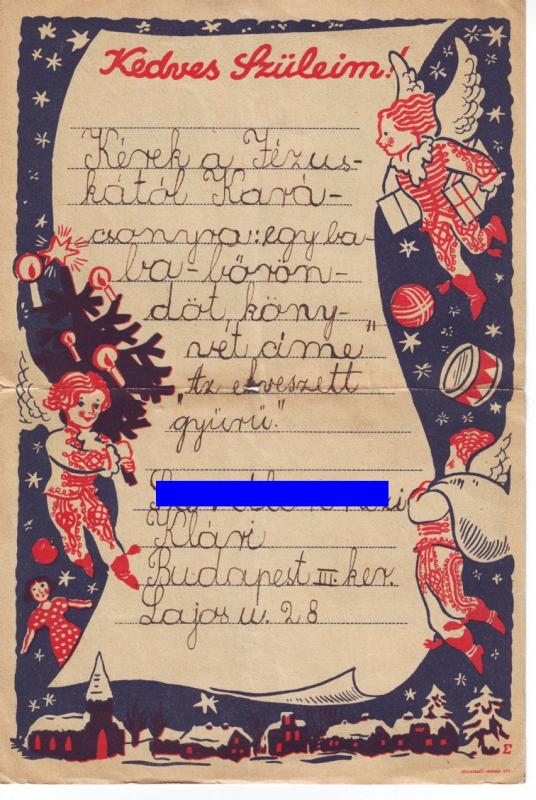 Kedves Szüleim!
Kérek a Jézus-
kától Kará-
csonyra: egy ba-
ba-bőrön-
döt, köny-
vet, címe"
"Az elveszett
gyürü."
Klári
Budapest III. ker.
Lajos u. 28